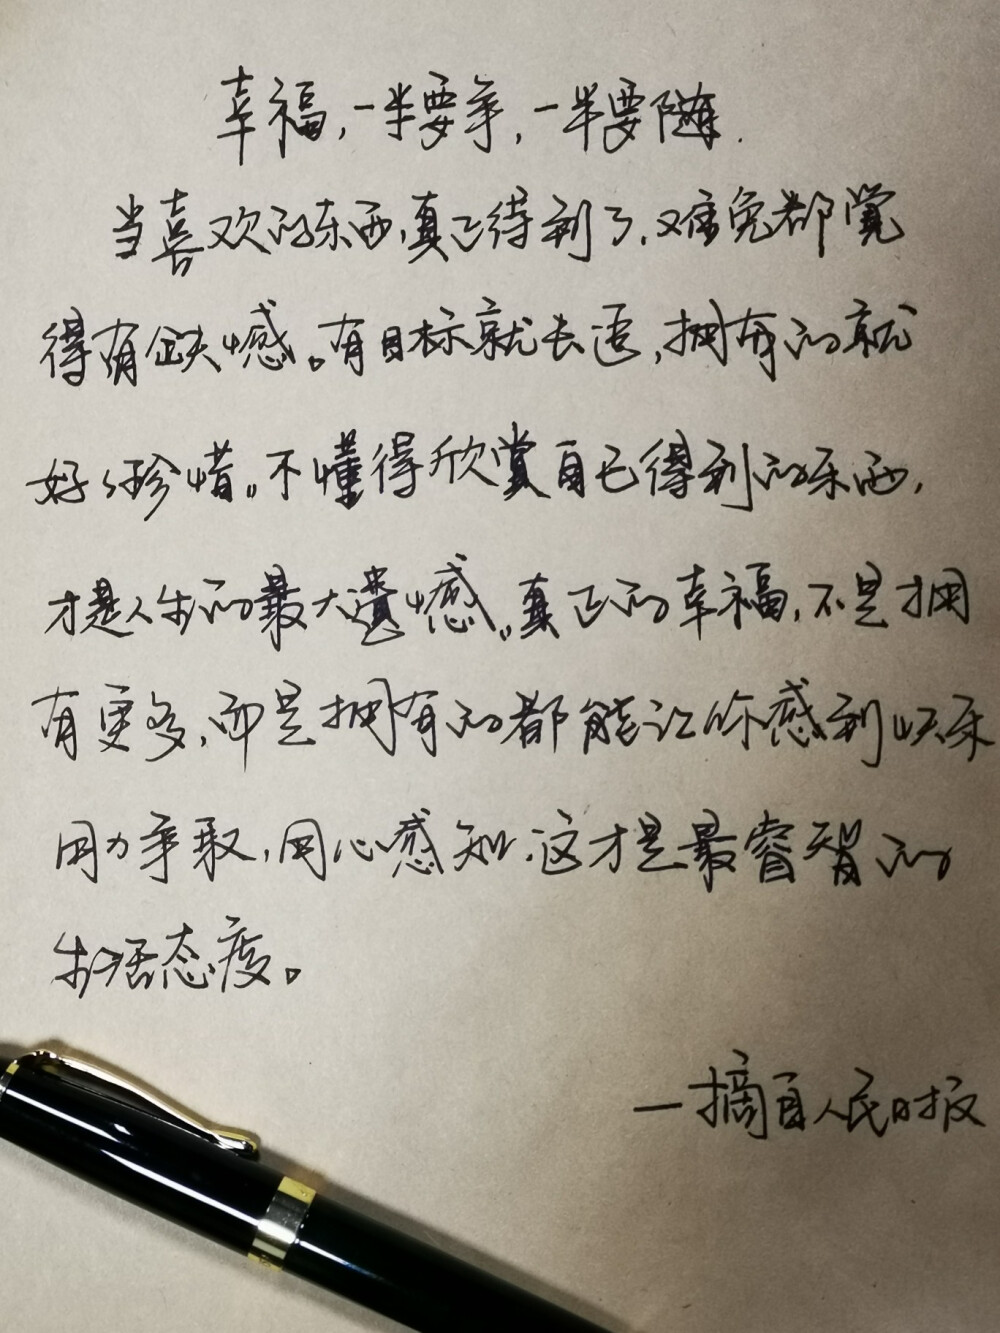 幸福,一半要争,一半要随.
当喜欢的东西,真正得到了,难免都觉
得有缺憾。有目标就去追,拥有的就
好好珍惜。不懂得欣赏自己得到的东西,
才是人生的最大遗憾。真正的幸福,不是拥
有更多,而是拥有的都能让你感到快乐
用力争取,用心感知.这才是最睿智的
生活态度。
—摘自人民日报